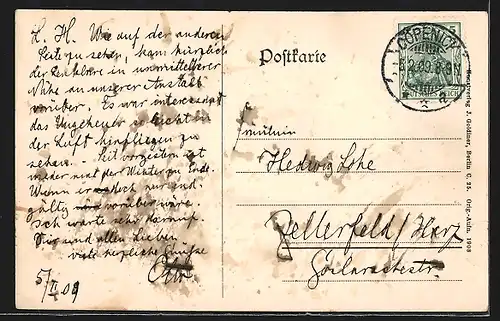 L. H. Wie auf der anderen
Seite zu sehen, kam kürzlich
der Zeppelin in unmittelbarer
Nähe an unserer Anstalt
vorüber. Es war interessant
das Ungeheuer so leicht in
der Luft hinfliegen zu
sehen. - Seit vorgestern ist
wieder mal der Winter zu Ende.
Wenn er doch nur end-
gültig vorüber wäre.
Ich warte sehr darauf.
Dir und allen Lieben
viele herzliche Grüsse
Otto.
5/II 09
Postkarte
CÖPENICK
5.2.09. 8-9N
a
5
Fräulein
Hedwig Lohe
Zellerfeld / Harz
Goslarschestr.
Kunstverlag J. Goldiner, Berlin C. 25. Orig.-Aufn. 1908